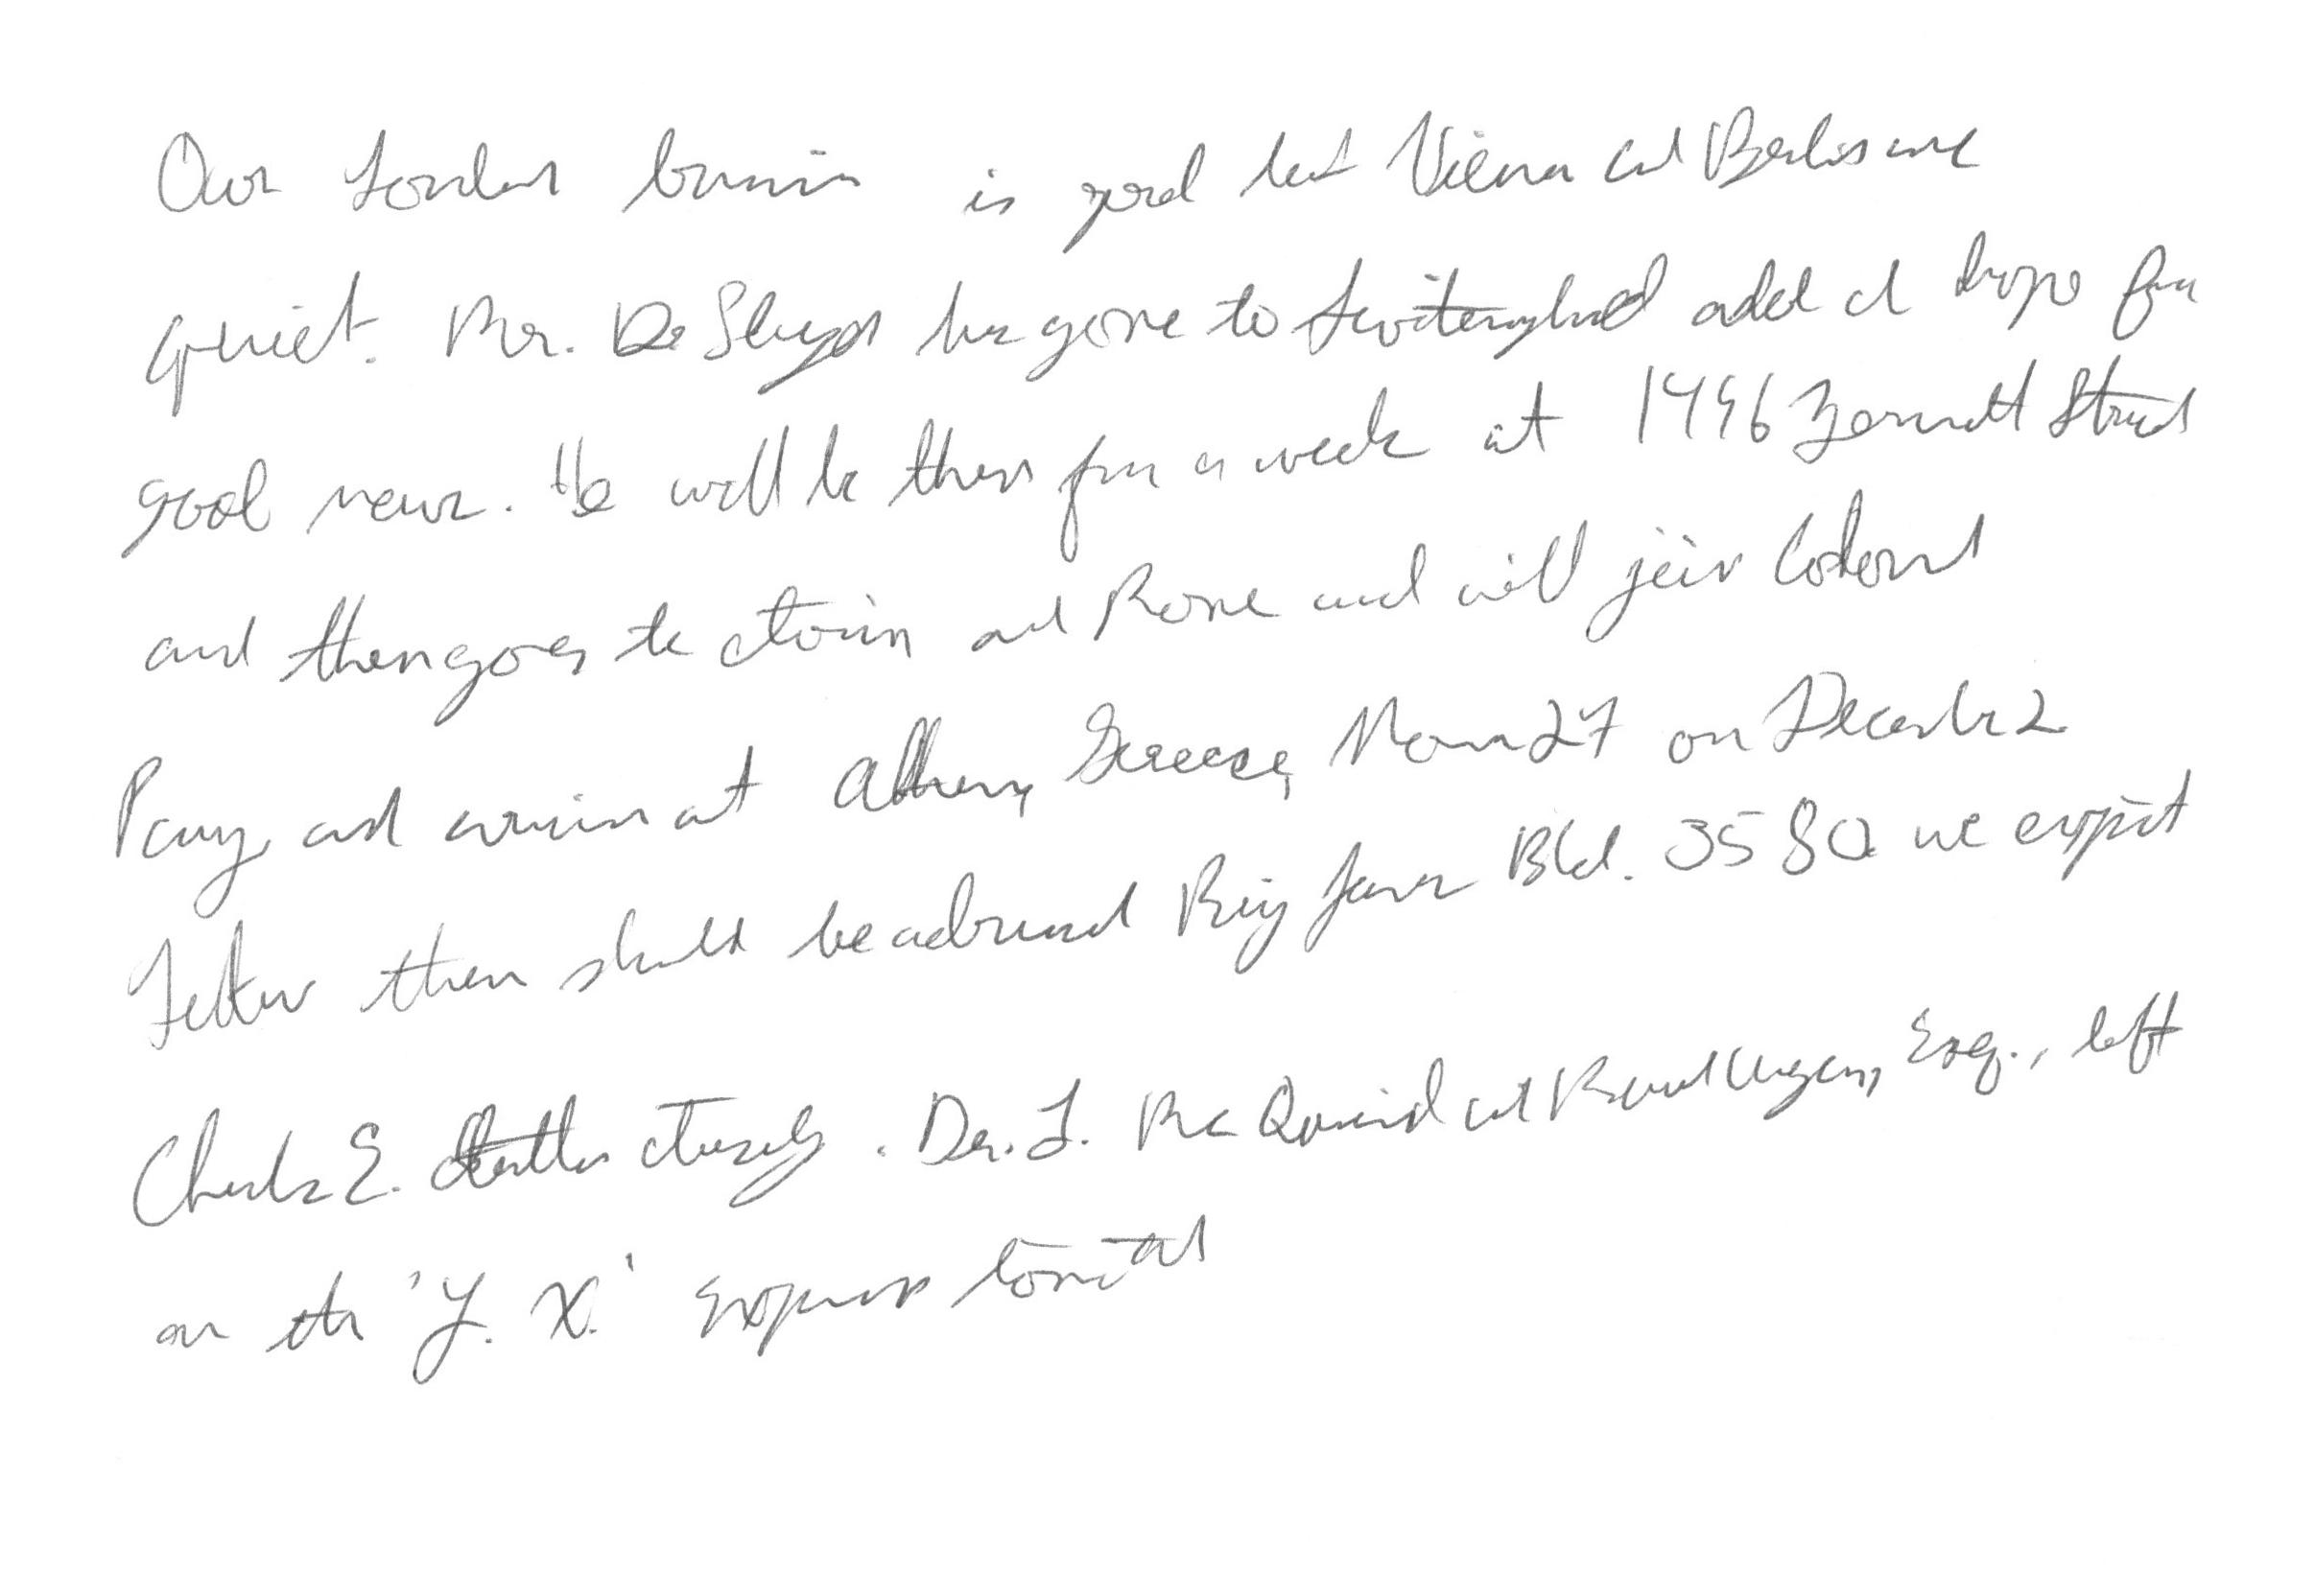 Our London business is good but Vienna and Berlin are
quiet. Mr. D. Sloyd has gone to Switzerland and I hope for
good news. He will be there for a week at 1496 Zermatt Street
and then goes to Turin and Rome and will join Colonel
Parry and arrive at Athens, Greece, Nov 27 or December 2
Letters there should be addressed King James Blvd. 3580 we expect
Charles E. Tuesday. Dr. L. McQuaid and Robert Unger, Esq., left
on the 'Y. X.' Express tonight